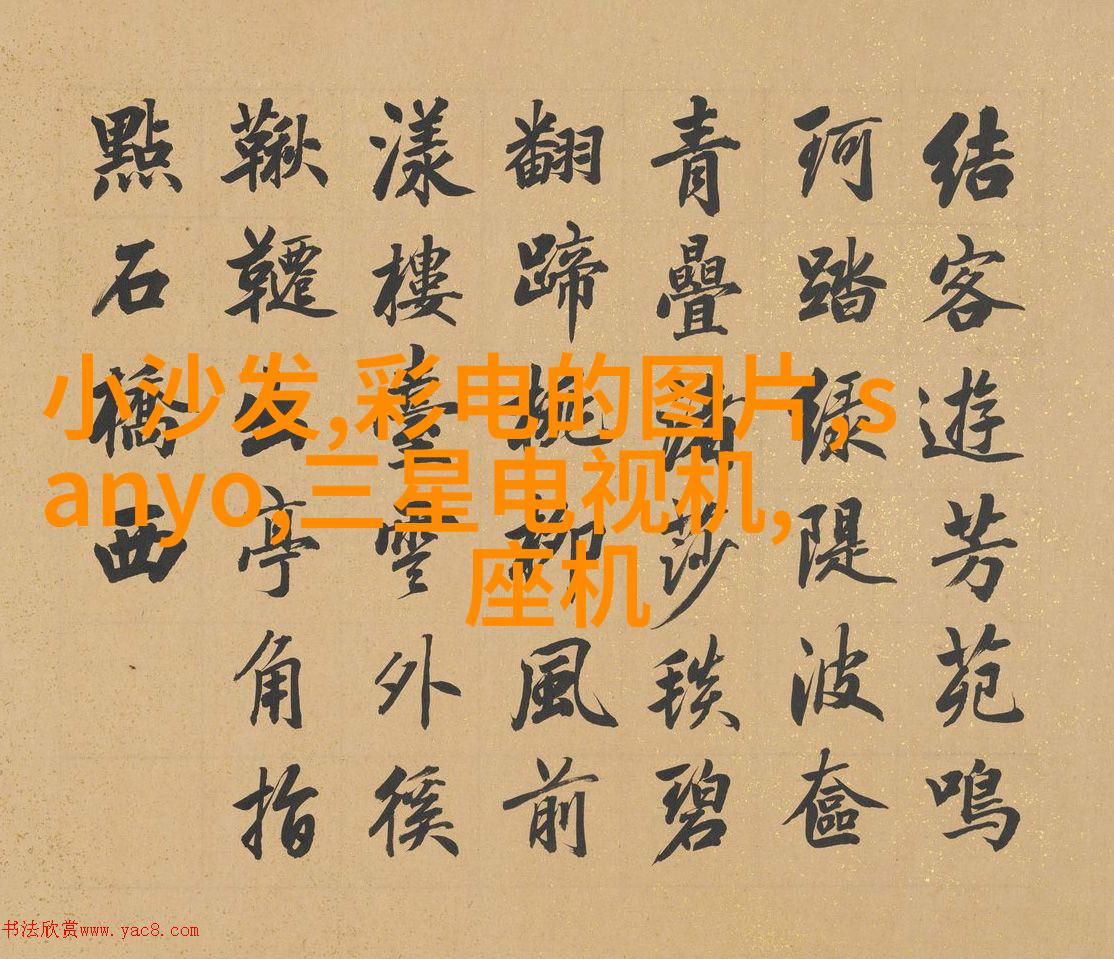 結客遊芳苑鳴
珂踏緑隄波奩
青疊莎毯碧
翻蹄柳風前
漾樓臺雲外徯
鞦韆亭角指
點石橋西
小沙发,彩电的图片,s
anyo,三星电视机,
座机
书法欣赏www.yac8.com